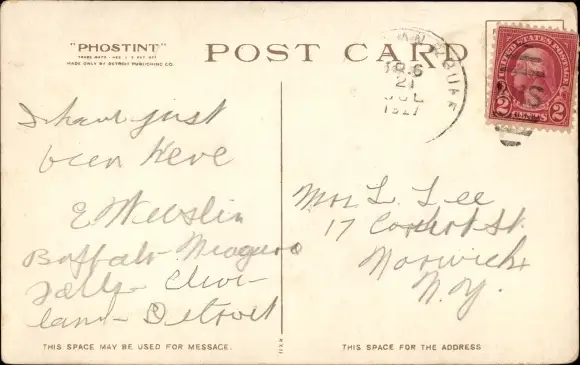 "PHOSTINT"
MADE ONLY BY DETROIT PUBLISHING CO.
POST CARD
6
21
JUL
1927
UNITED STATES POSTAGE
2 2
I have just
been here
E Webslin
Buffalo- Niagara
Falls- Cleve-
land- Detroit
Mrs L. Lee
17 St.
Norwich
N.Y.
THIS SPACE MAY BE USED FOR MESSAGE.
THIS SPACE FOR THE ADDRESS